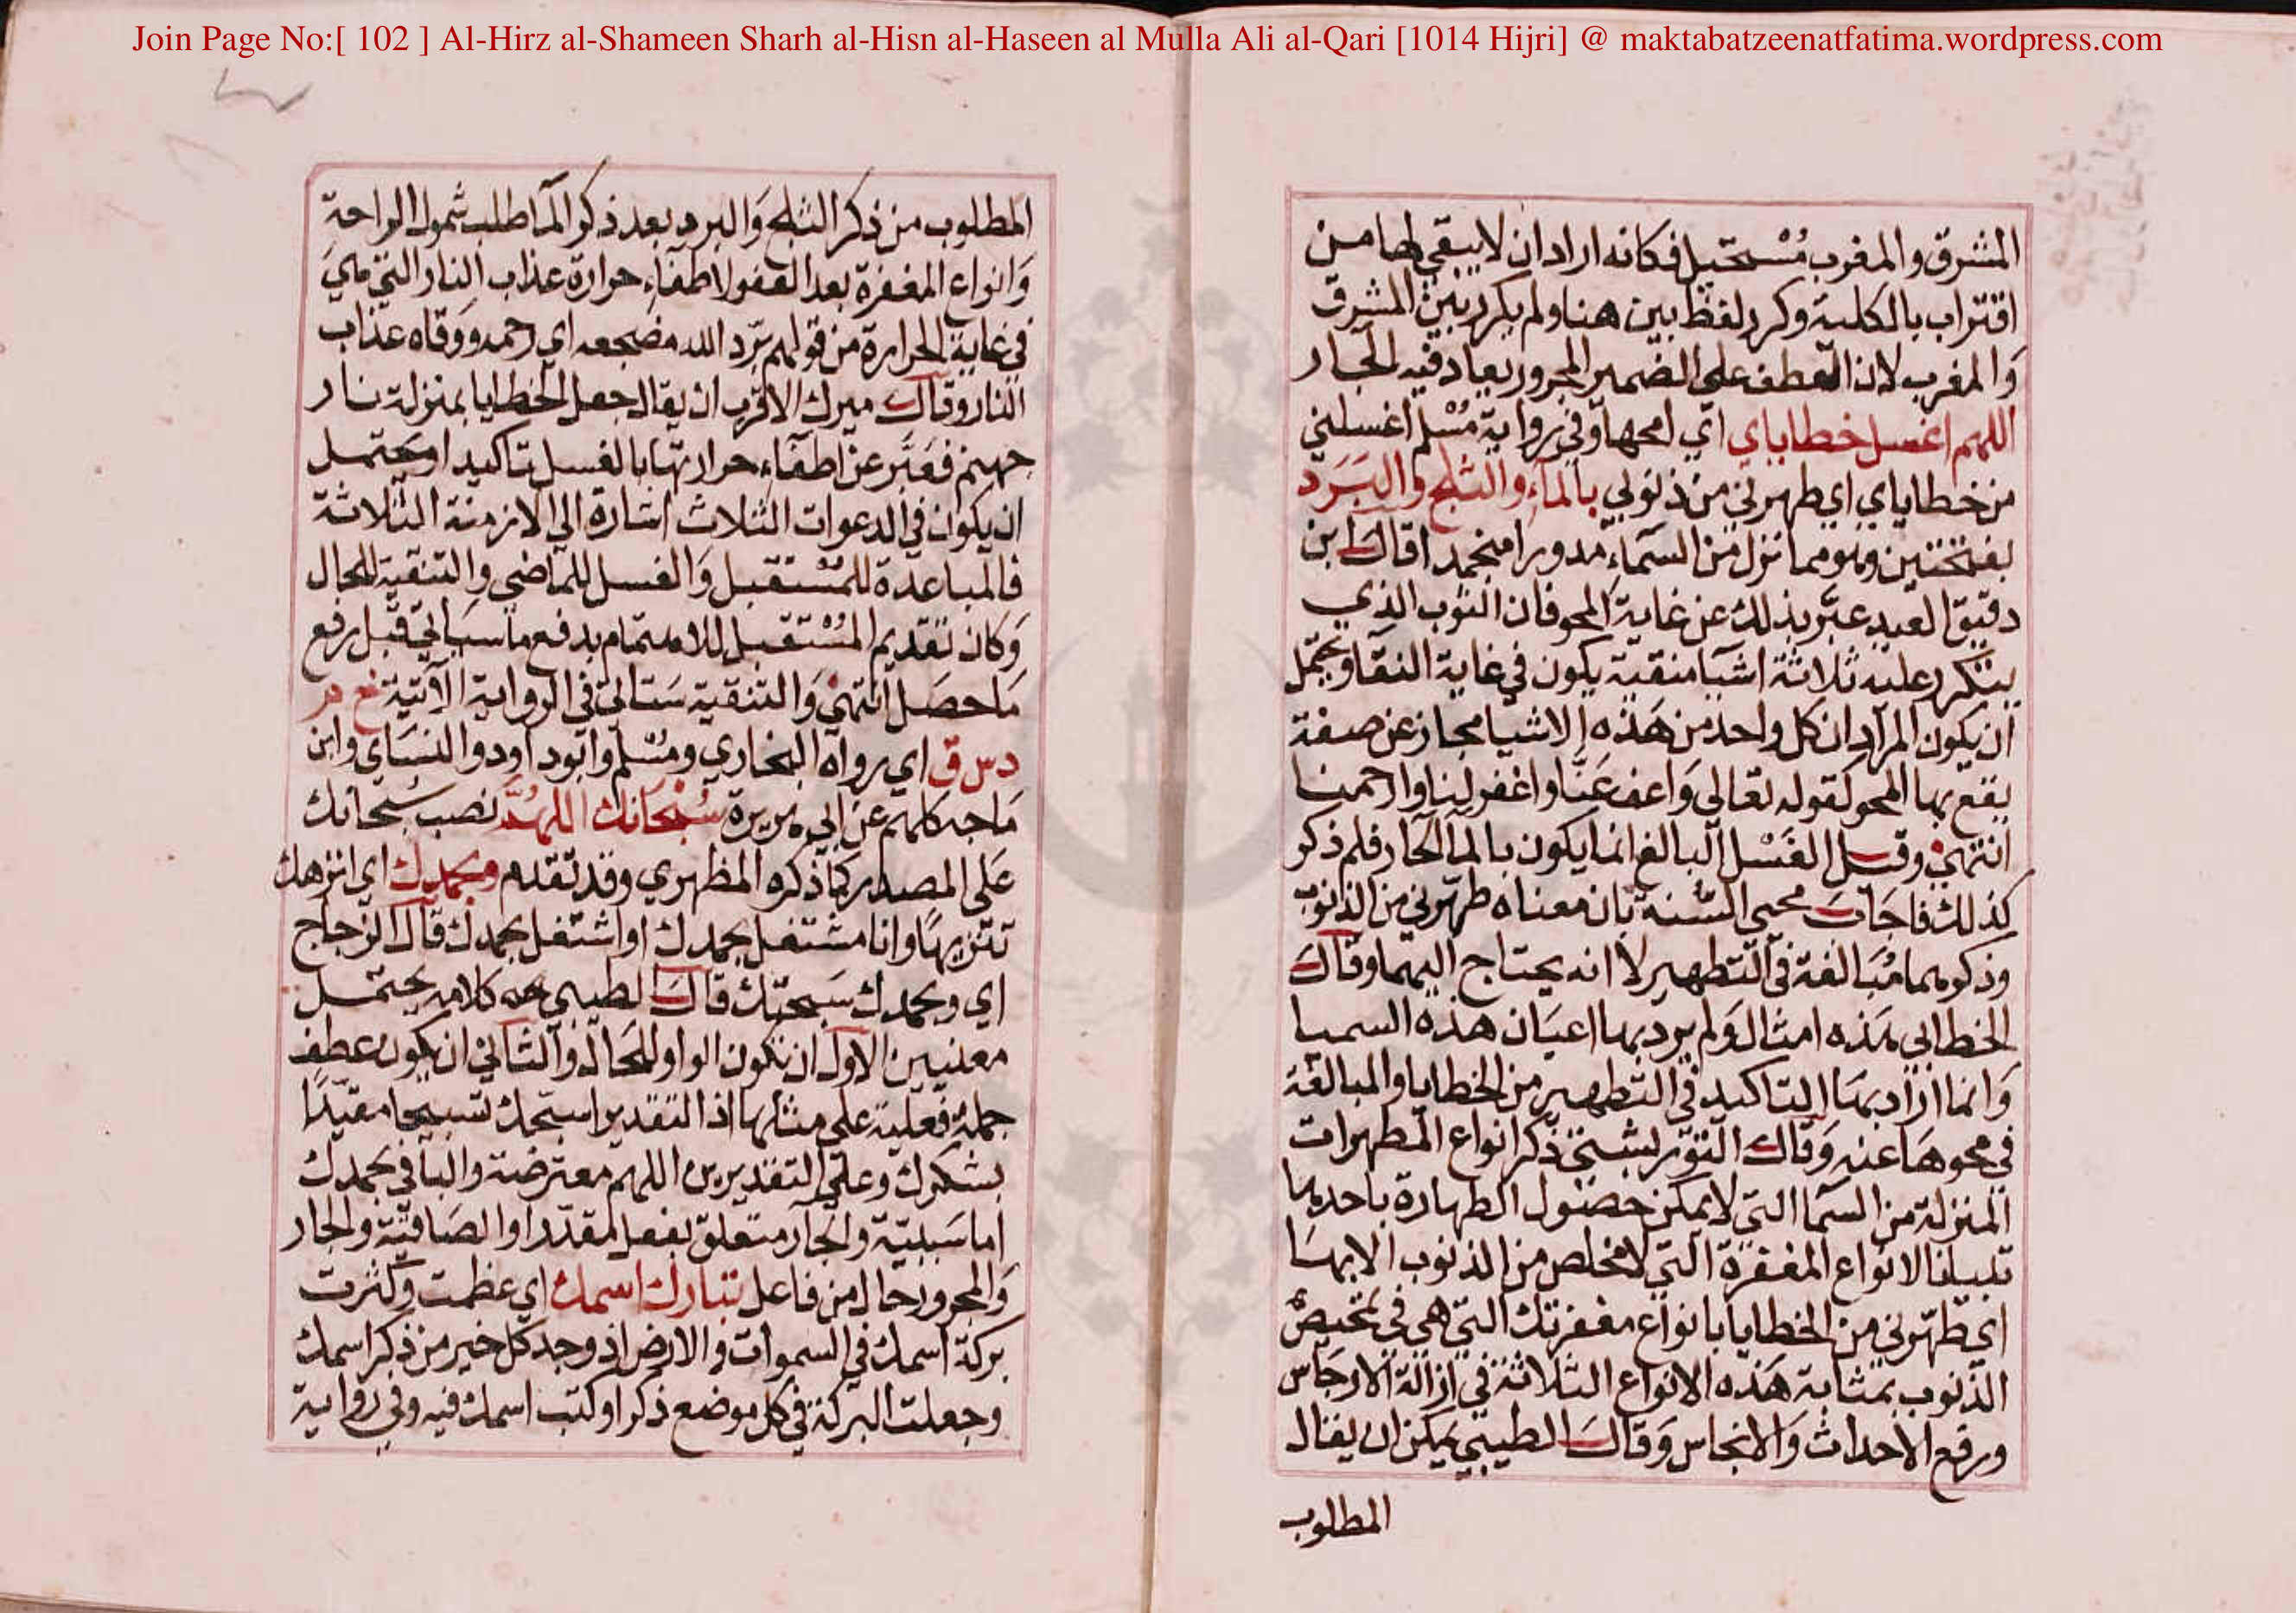 Join Page No:[ 102 ] Al-Hirz al-Shameen Sharh al-Hisn al-Haseen al Mulla Ali al-Qari [1014 Hijri] @ maktabatzeenatfatima.wordpress.com
المشرق والمغرب مُسْتحيل فكانه اراد ان لا يبقي لها من
اقتراب بالكلية وكرر لفظ بين هنا ولم يكرر بين المشرق
وَالمغرب لان العطف علي الضمير المجرور يعاد فيه الجار
اللهم اغسل خطاياي اي امحها وفي رواية مُسْلم اغسلني
من خطاياي اي طهرني من ذنوبي بالمآءِ والثلج والبَرَد
بفتحتين وهو مما نزل من السمآءِ مدورا منجمدا قال ابن
دقيق العيد عبّر بذلك عن غاية المحو فان الثوب الذي
يتكرر عليه ثلاثة اشيا منقية يكون في غاية النقا ويحتمل
ان يكون المراد ان كل واحد من هَذه الاشيا مجاز عن صفة
يقع بها المحو كقوله تعالى وَاعف عَنّا واغفر لنا وارحمنا
انتهيٰ وقيل الغَسْل البالغ انما يكون بالمآ الحار فلم ذكر
كذلك فاجَابَ محيي السّنة بان معناه طهّرني من الذنوب
وذكرهما مُبَالغة في التطهير لا انه يحتاج اليهما وقال
الخطابي هَذه امثال وَلم يرد بها اعيَان هذه السميا
وَانما اراد بهَا التاكيد في التطهير من الخطايا والمبالغة
في محوهَا عنه وَقال التوربشتي ذكر انواع المطهرات
المنزلة من السمآ التي لا يمكن حصُول الطهارة باحدها
تبيانا لانواع المغفرة التي لا مخلص من الذنوب الا بهَا
اي طهّرني من الخطايا بانواع مغفرتك التي هي في تمحيص
الذنوب بمثابة هَذه الانواع الثلاثة في ازالة الارجَاس
ورفع الاحداث وَالانجاس وَقال الطيبي يمكن ان يقال
المطلوب
المطلوب من ذكر الثلج وَالبرد بعد ذكر المآ طلب شمول الراحة
وَانواع المغفرة بعد العفو لاطفآءِ حرارة عذاب النار التي هي
في غاية الحرارة من قولهم برّد الله مضجعه اي رحمه ووقاه عذاب
النار وقال ميرك الاقرب ان يقال جعل الخطايا بمنزلة نار
جهنم فعَبَّر عن اطفآء حرارتها بالغسل تاكيدا ويحتمل
ان يكون في الدعوات الثلاث اشارة الي الازمنة الثلاثة
فالمباعدة للمُسْتقبل وَالغسل للماضي والتنقية للحال
وَكان تقديم المُسْتقبل للاهتمام بدفع ما سيَاتي قبل رفع
مَا حصَل انتهيٰ وَالتنقية سَتاتي في الرواية الآتية خ م
د س ق اي رواه البخاري ومُسْلم وابو داود والنسَاي وابن
مَاجه كلهم عن ابي هريرة سُبْحَانك اللهُمَّ نصب سُبحانك
عَلي المصدر كما ذكره المظهري وقد تقدم وبحمدك اي انزهك
تنزيهًا وانا مشتغل بحمدك او اشتغل بحمدك قال الزجاج
اي وبحمدك سَبحتك قال الطيبي هه كلامه يحتمل
معنيين الاول ان تكون الواو للحَال وَالثاني ان يكون عطف
جملة فعلية علي مثلها اذ التقدير اسبحك تسبيحا مقيّدًا
بشكرك وعلي التقديرين اللهم معترضة والبا في بحمدك
اما سَببيّة والجار متعلق بفعل مقدّر او الصَاقيّة والجار
وَالمجرور حال من فاعل تبارك اسمك اي عظمت وكثرت
بركة اسمك في السموات والارض اذ وجد كل خير من ذكر اسمك
وجعلت البركة في كل موضع ذكر او كتب اسمك فيه وفي رواية